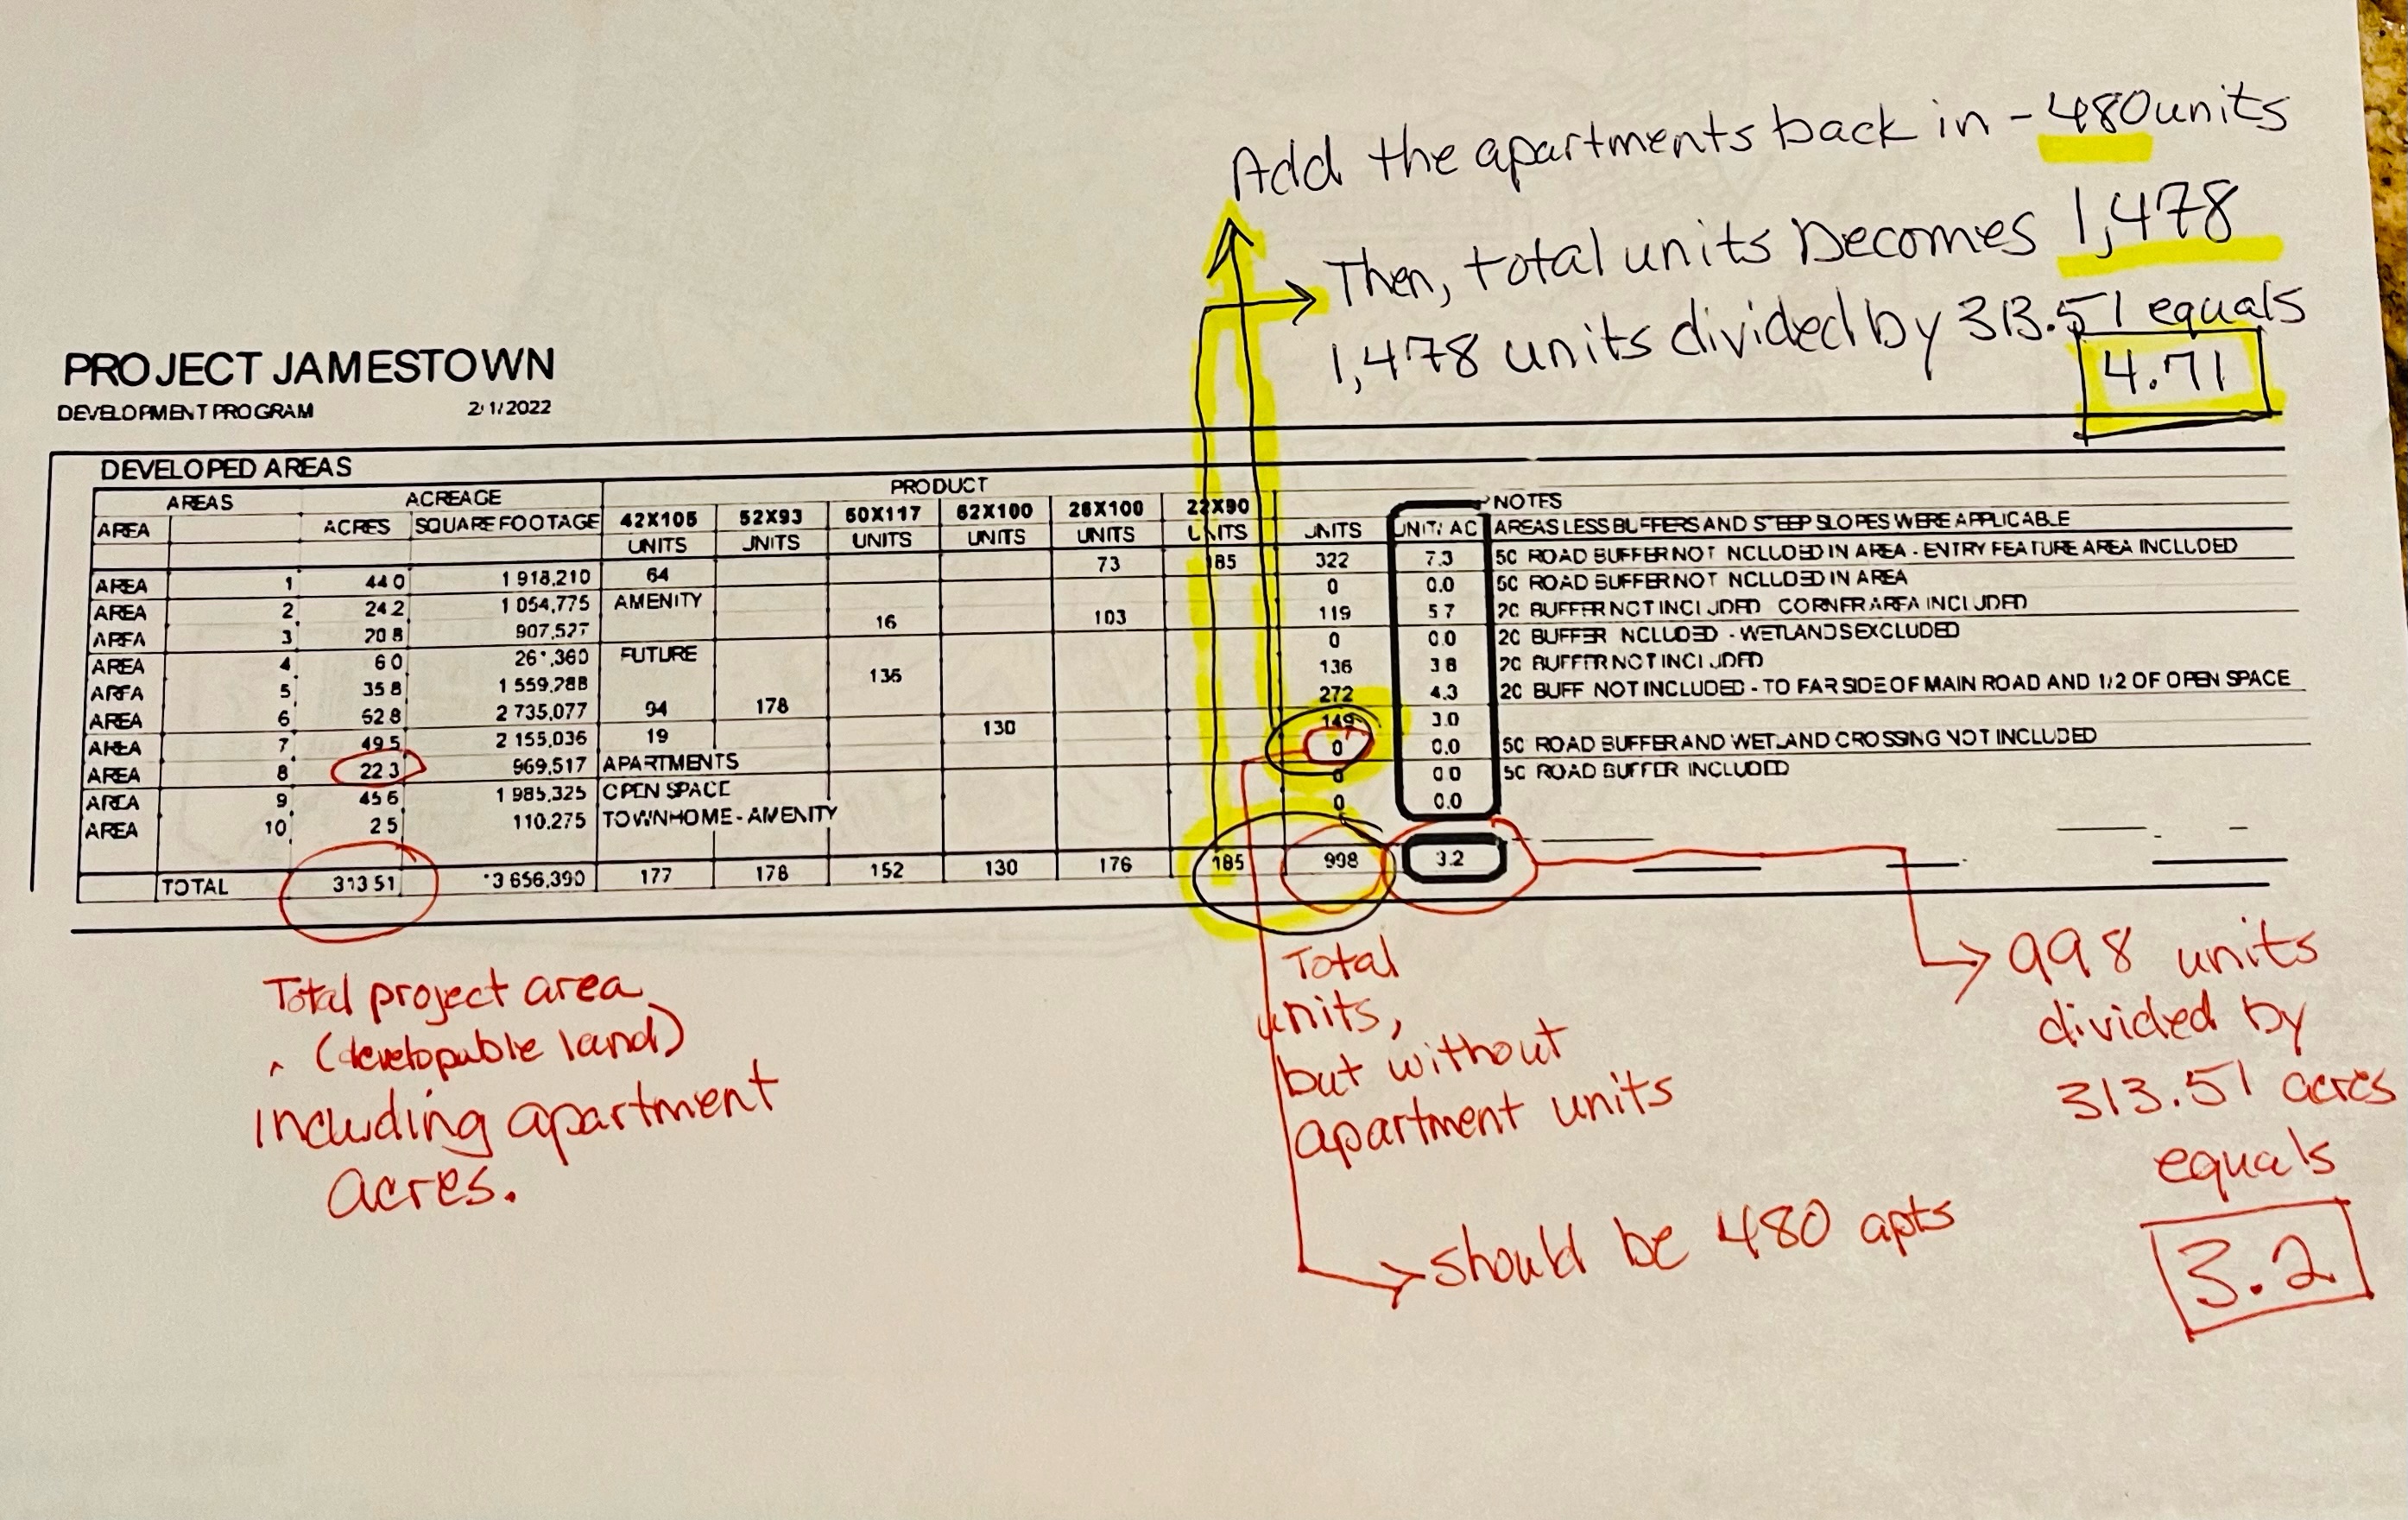 Add the apartments back in - 480 units
Then, total units becomes 1,478
1,478 units divided by 313.51 equals
4.71
PROJECT JAMESTOWN
DEVELOPMENT PROGRAM 2/1/2022
DEVELOPED AREAS
AREAS ACREAGE PRODUCT NOTES
AREA ACRES SQUARE FOOTAGE 42X105 52X93 60X117 62X100 26X100 22X90 UNITS UNIT/ AC AREAS LESS BUFFERS AND STEEP SLOPES WERE APPLICABLE
UNITS UNITS UNITS UNITS UNITS UNITS
AREA 1 44 0 1 918,210 64 73 185 322 7.3 50 ROAD BUFFER NOT NCLUDED IN AREA - ENTRY FEATURE AREA INCLUDED
AREA 2 24 2 1 054,775 AMENITY 0 0.0 50 ROAD BUFFER NOT NCLUDED IN AREA
AREA 3 20 8 907,527 16 103 119 5 7 20 BUFFER NOT INCLUDED CORNER AREA INCLUDED
AREA 4 6 0 261,360 FUTURE 0 0.0 20 BUFFER NCLUDED - WETLANDS EXCLUDED
AREA 5 35 8 1 559,288 136 136 3 8 20 BUFFER NOT INCLUDED
AREA 6 62 8 2 735,077 94 178 272 4.3 20 BUFF NOT INCLUDED - TO FAR SIDE OF MAIN ROAD AND 1/2 OF OPEN SPACE
AREA 7 49 5 2 155,036 19 130 149 3.0
AREA 8 22 3 969,517 APARTMENTS 0 0.0 50 ROAD BUFFER AND WETLAND CROSSING NOT INCLUDED
AREA 9 45 6 1 985,325 OPEN SPACE 0 0 0 50 ROAD BUFFER INCLUDED
AREA 10 2 5 110,275 TOWNHOME - AMENITY 0 0.0
TOTAL 313 51 13 656,390 177 178 152 130 176 185 998 3.2
Total project area
(developable land)
including apartment
acres.
Total
units,
but without
apartment units
should be 480 apts
998 units
divided by
313.51 acres
equals
3.2